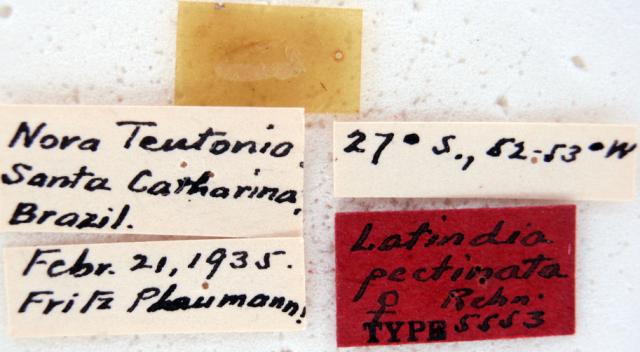 Nova Teutonia.
Santa Catharina,
Brazil.
27° S., 52-53° W
Febr. 21, 1935.
Fritz Plaumann.
Latindia
pectinata
♀ Rehn.
TYPE 5553